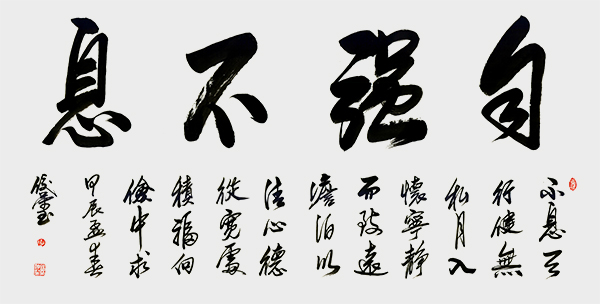 自强不息
不息天
行健無
私月入
懷寧靜
而致遠
澹泊以
清心德
從寬處
積福向
儉中求
甲辰孟春